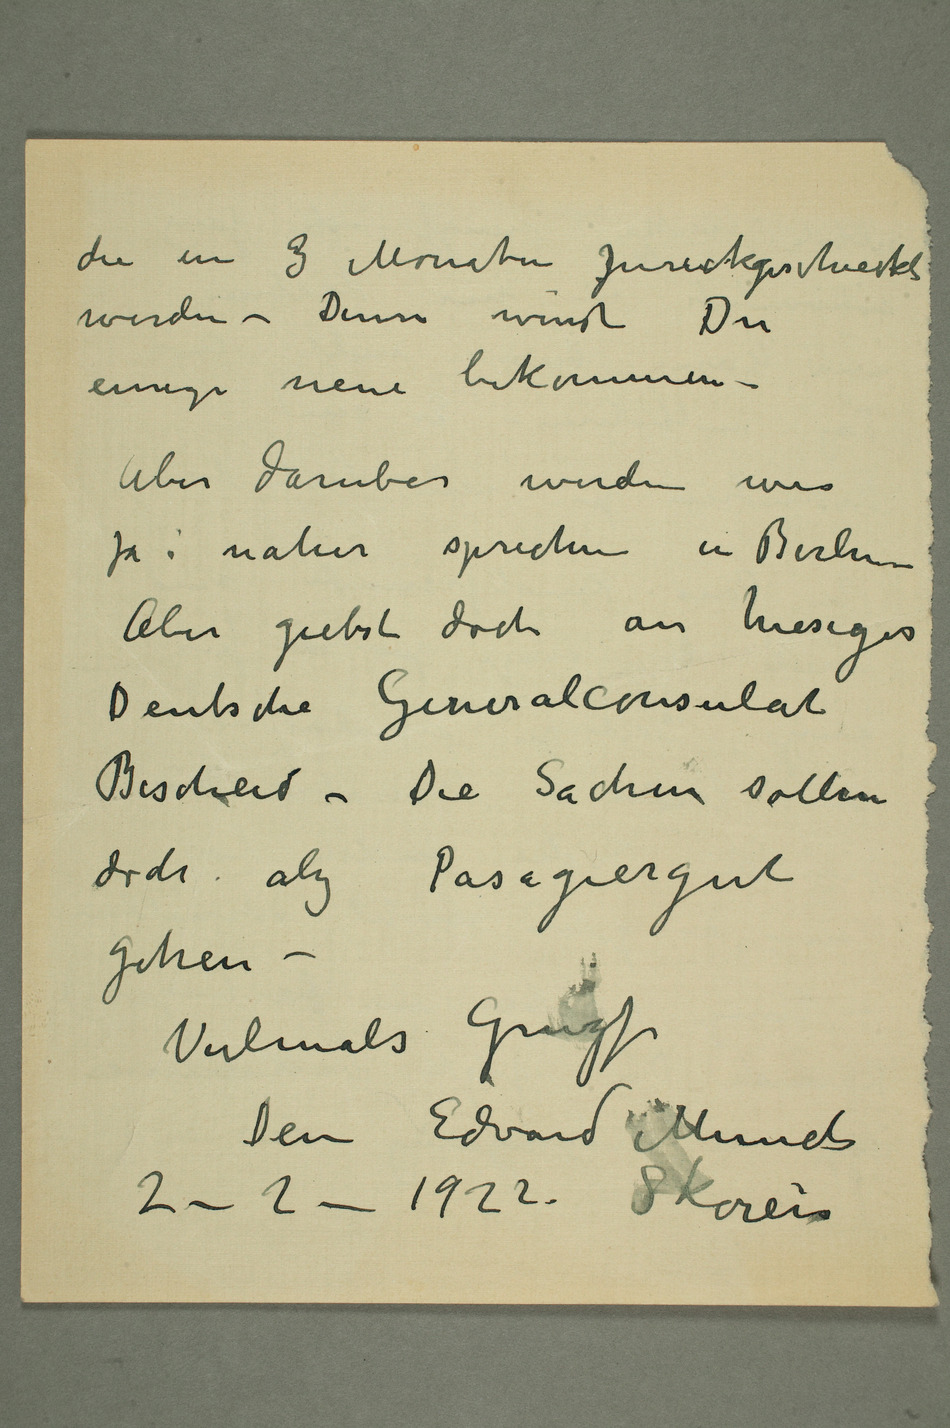 die in 3 Monaten zurückgeschickt
werden – Denn wirdst Du
einige neue bekommen –
Aber daruber werden wir
ja naher sprechen in Berlin –
Aber giebst doch an hiesiges
Deutsche Generalconsulat
Bescheid – Die Sachen sollen
doch als Pasagiergut
gehen –
Vielmals Grusse
Dein Edvard Munch
2 – 2 – 1922. Skøien